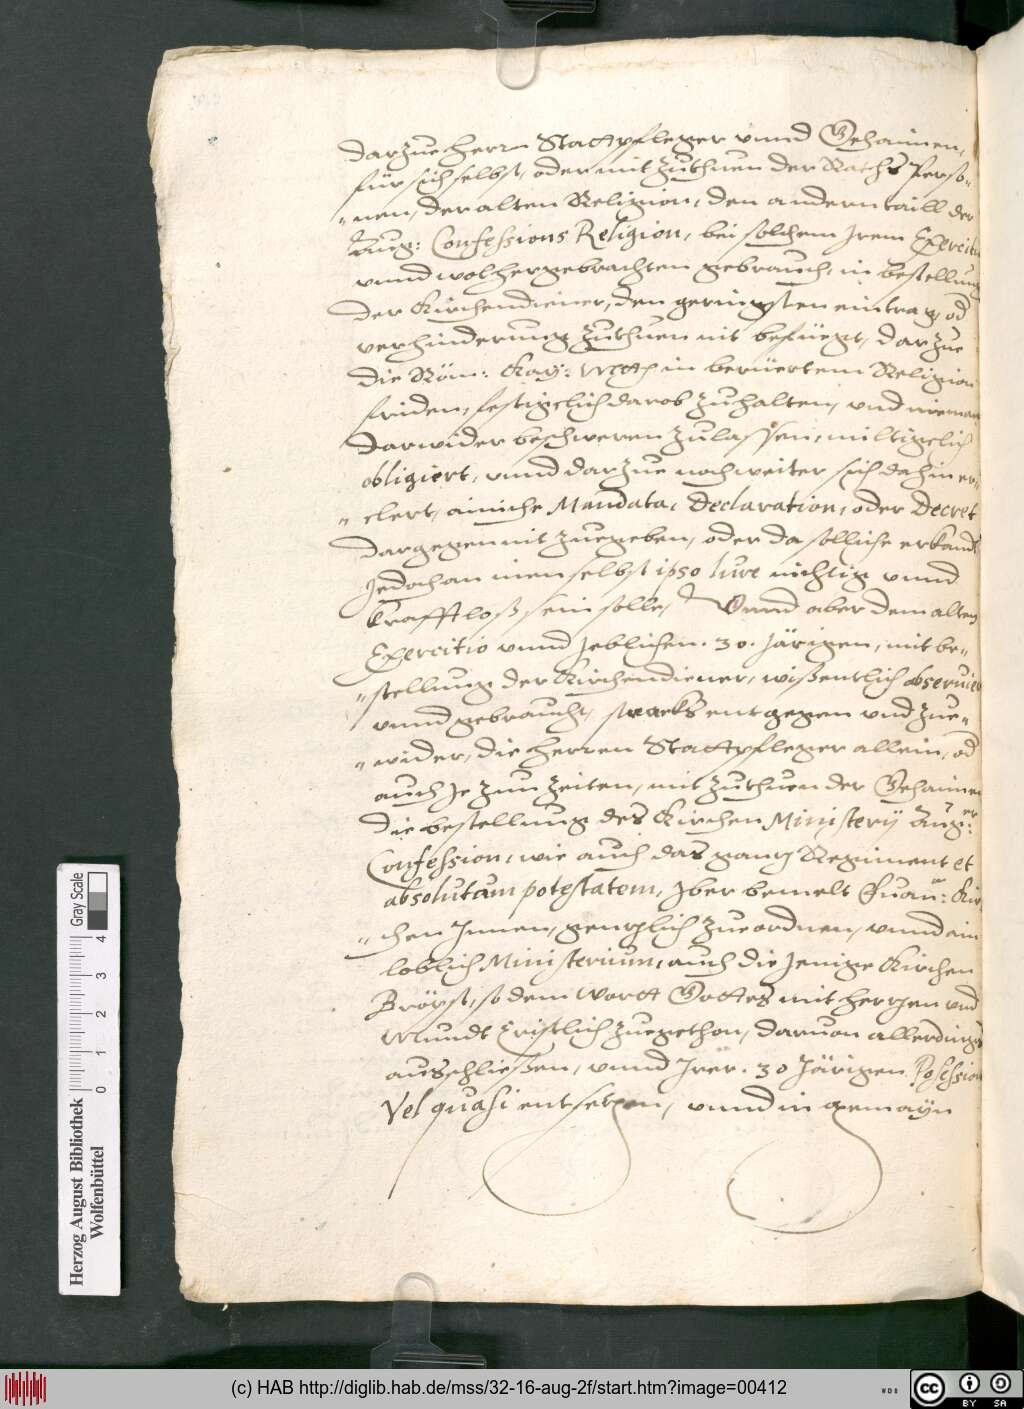 darzue herrn Stattpfleger vnnd Gehaimen,
für sich selbst, oder mit zuthuen der Raths Perso-
nen, der alten Religion, den andern taill der
Aug: Confessions Religion, bei solchem Irem Exercitio
vnnd wolhergebrachten gebrauch, in bestellung
der Kirchendiener, den geringsten eintrag, od
verhinderung zuthuen nit befüegt, darzue
die Röm: Kay: Mtt in berüertem Religion
friden, festigclich darob zuhalten, vnd nieman
darwider beschweren zulassen, miltigclich
obligiert, vnnd darzue noch weiter sich dahin er-
clert, ainiche Mandata, Declaration, oder Decret
dargegen nit zuegeben, oder da solliche erkandt
Jedoch an inen selbst ipso Iure nichtig vnnd
krafftloß sein solle, Vnnd aber dem alten
Exercitio vnnd Jeblichen .30. Järigen, mit be-
stellung der Kirchendiener, wißentlich obseruiert
vnnd gebraucht, stracks entgegen vnd zue-
wider, die herren Stattpfleger allein, od
auch Je zun Zeiten, mit zuthuen der Gehaimen
die bestellung des Kirchen Ministerij Aug:er
Confession, wie auch das gantz Regiment et
absolutam potestatem, Jber bemelt Euan: Kir
chen Innen, gentzlich zue ordnen, vnnd ein
loblich Ministerium, auch die Jenige Kirchen
Bröpst, so dem Wortt Gottes mit hertzen vnd
Mundt Cristlich zuegethon, daruon allerdings
auschließen, vnnd Irer .30 Järigen Possession
Vel quasi entsetzen, vnnd in gemayn
Herzog August Bibliothek
Wolfenbüttel
0 1 2 3 4
Gray Scale
(c) HAB http://diglib.hab.de/mss/32-16-aug-2f/start.htm?image=00412
WDB
cc BY SA